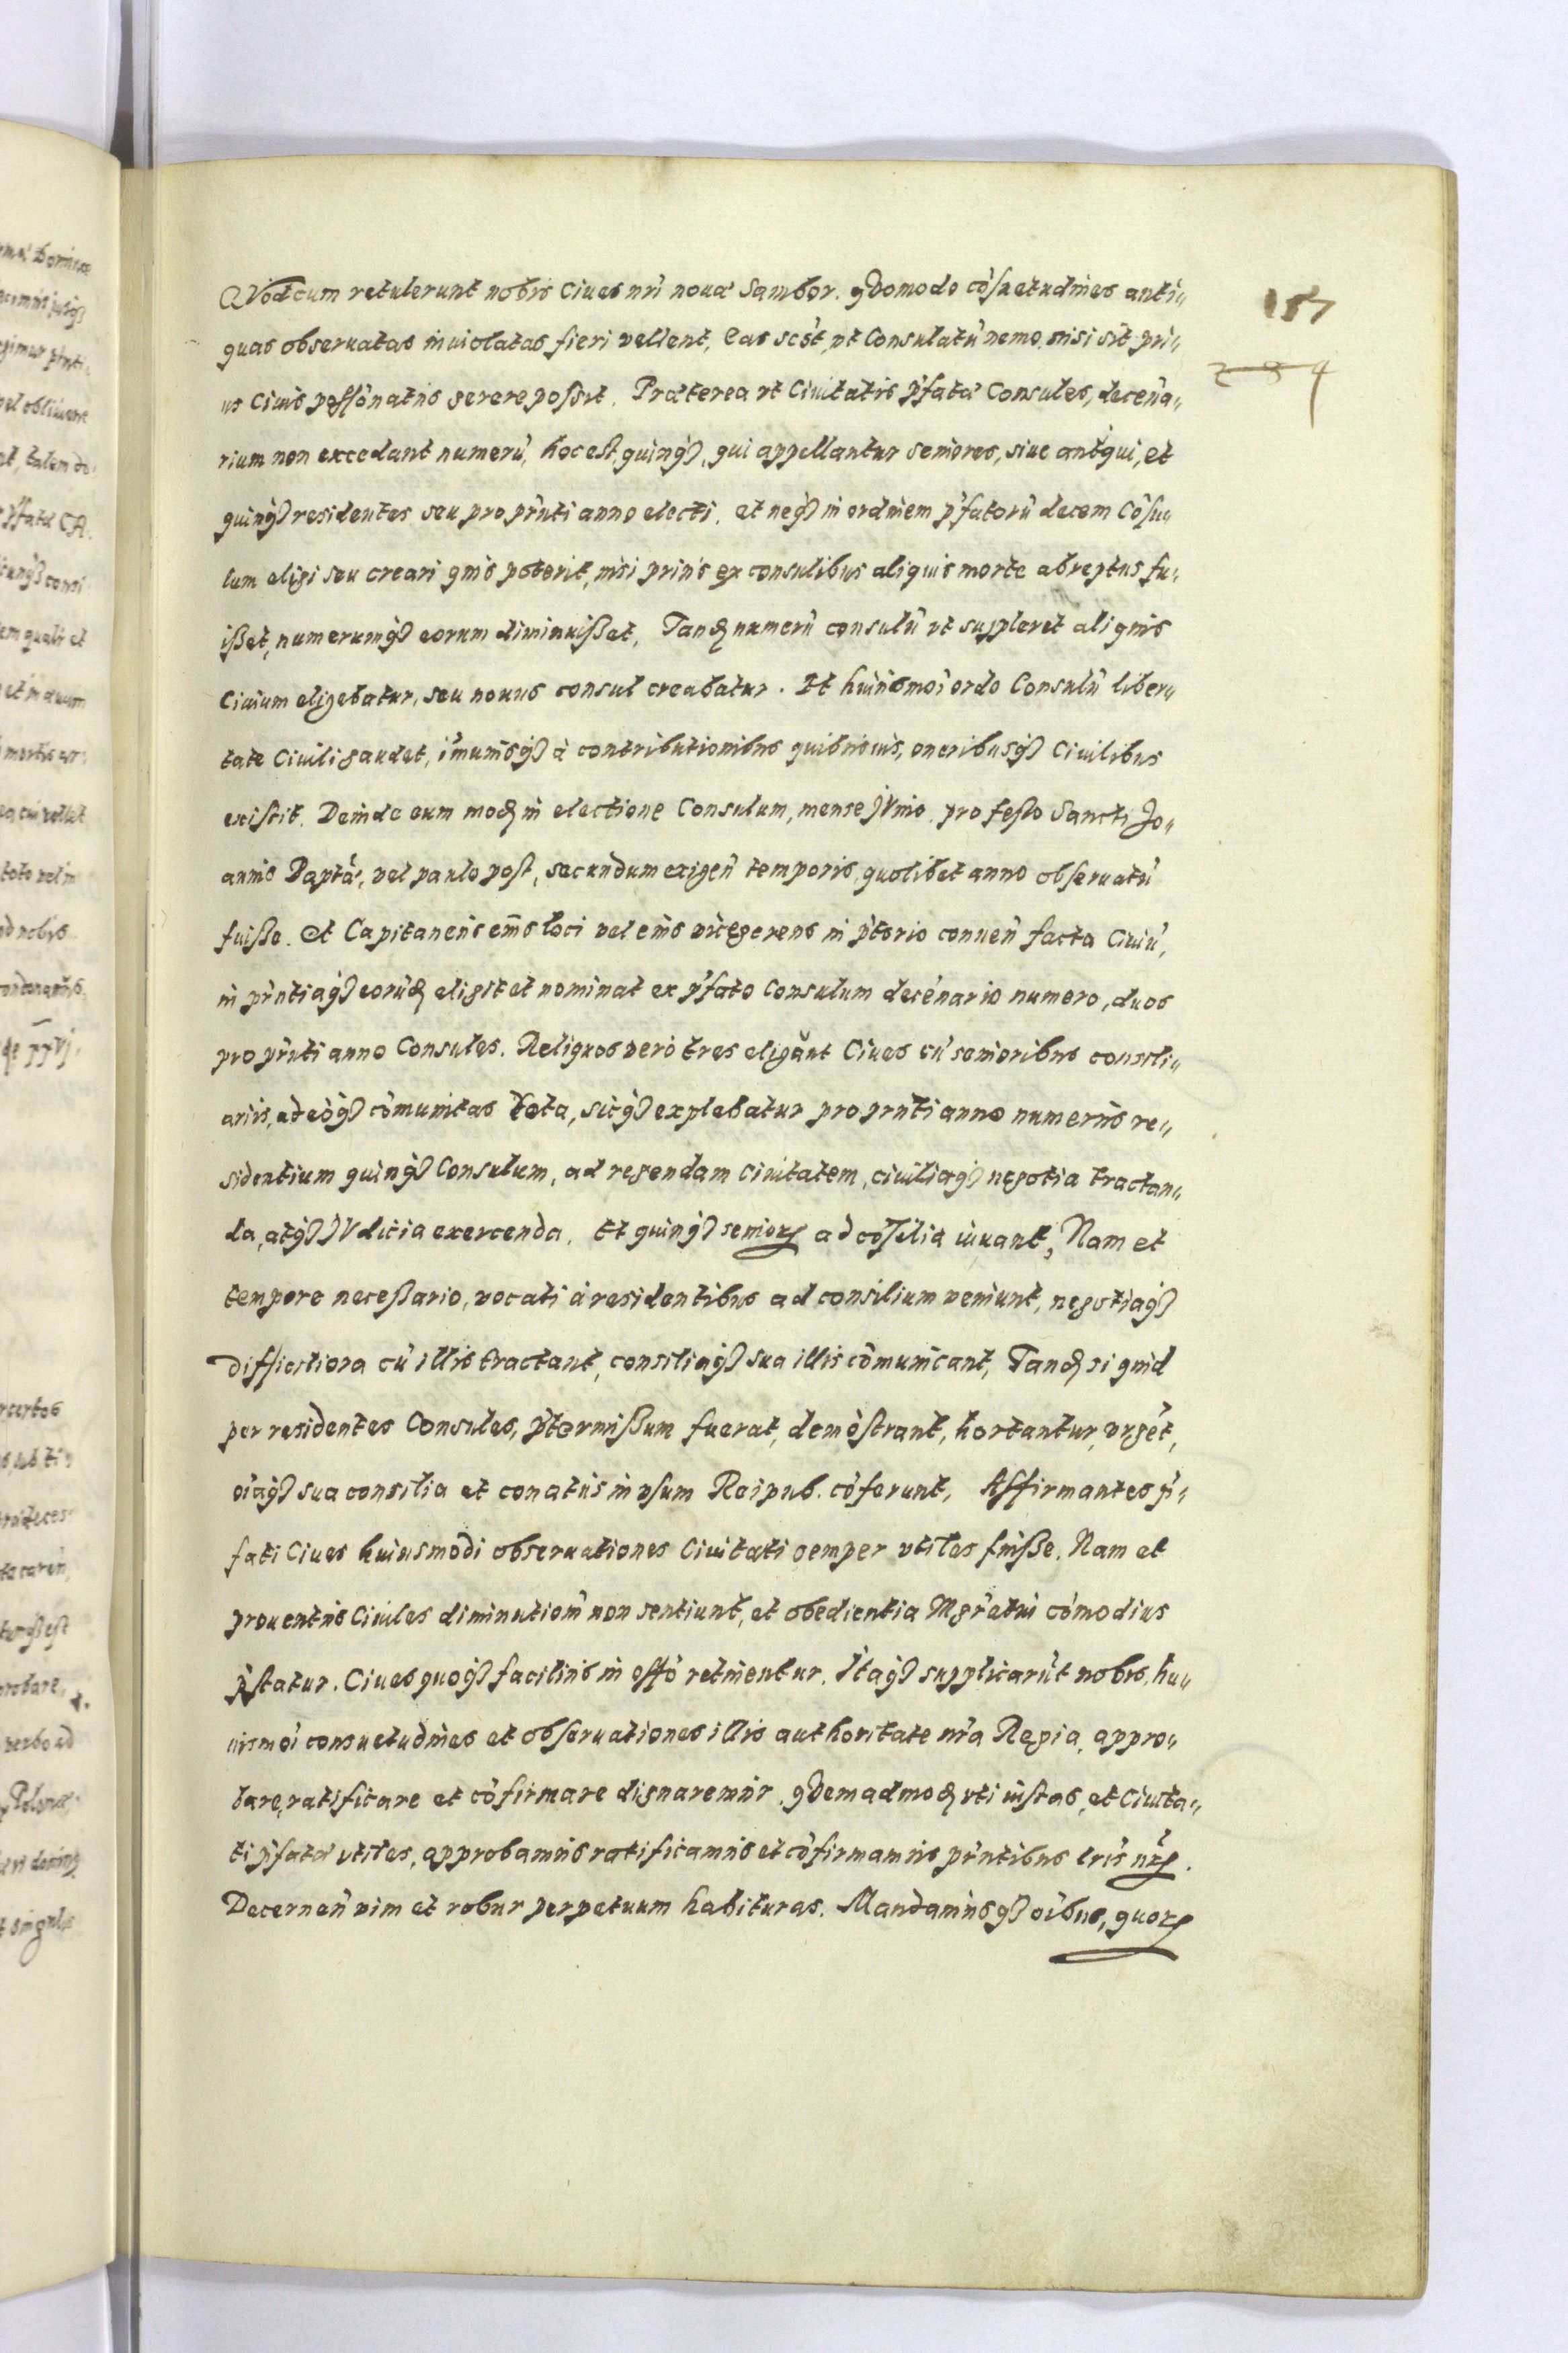 QVod cum retulerunt nobis Ciues nri noua Sambor. qDomodo cosuetudines anti„
quas obseruatas inuiolatas fieri vellent, Eas sczt, vt Consulatu nemo, nisi sit pri„
us Ciuis possionatus gerere possit. Praeterea vt Ciuitatis pfatae Consules, decena„
rium non excedant numeru, hoc est quinqȝ, qui appellantur seniores, siue antiqui, et
quinqȝ residentes seu pro pnti anno electi. et neqȝ in ordinem pfatoru decem Cosu„
lum eligi seu creari quis poterit, nisi prius ex consulibus aliquis morte abreptus fu„
isset, numerumqȝ eorum diminuisset, Tandȝ numeru consulu vt suppleret aliquis
Ciuium eligebatur, seu nouus consul creabatur. Et huiusmoi ordo Consulu liber„
tate Ciuili gaudet, imunisqȝ à contributionibus quibusuis, oneribusqȝ Ciuilibus
existit. Deinde eum modȝ in electione Consulum, mense JVnio, pro festo Sancti Jo„
annis Baptae, vel paulo post, secundum exigen temporis, quolibet anno obseruatu
fuisse. Et Capitaneus eius loci vel eius vicegerens in ptorio conuen facta Ciuiu,
in pntiaqȝ eorudȝ eligit et nominat ex pfato Consulum decenario numero, duos
pro pnti anno Consules. Reliquos vero tres eligunt Ciues cu senioribus consili„
ariis, adeoqȝ comunitas tota, sicqȝ explebatur pro pnti anno numerus re„
sidentium quinqȝ Consulum, ad regendam Ciuitatem, ciuiliaqȝ negotia tractan„
da, atqȝ JVdicia exercenda. Et quinqȝ senioꝝ ad cosilia iuuant, Nam et
tempore necessario, vocati à residentibus ad consilium veniunt, negotiaqȝ
difficiliora cu illis tractant, consiliaqȝ sua illis comunicant, Tandȝ si quid
per residentes Consules, ptermissum fuerat, demostrant, hortantur, vrget,
oiaqȝ sua consilia et conatus in vsum Reipub. coferunt, Affirmantes p„
fati Ciues huiusmodi obseruationes Ciuitati semper vtiles fuisse. Nam et
prouentus Ciuiles diminutiom non sentiunt, et obedientia Mgratui comodius
pstatur. Ciues quoqȝ facilius in offo retinentur. Itaqȝ supplicarut nobis, hu„
iusmoi consuetudines et obseruationes illis authoritate nra Regia, appro„
bare, ratificare et cofirmare dignaremur. qDemadmodȝ vti iustas, et Ciuita„
ti pfatae vtiles, approbamus ratificamus et cofirmamus pntibus lris nrꝝ.
Decernen vim et robur perpetuum habituras. Mandamusqȝ oibus, quorꝝ
187
234